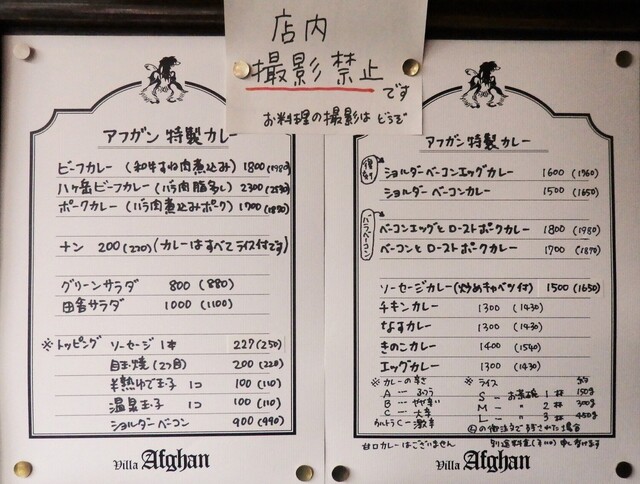 店内
撮影禁止
です
お料理の撮影は どうぞ
アフガン 特製 カレー
ビーフカレー (和牛すね肉煮込み) 1800 (1980)
八ヶ岳ビーフカレー (バラ肉脂多し) 2300 (2530)
ポークカレー (バラ肉煮込みポーク) 1700 (1870)
ナン 200 (220) (カレーはすべてライス付です)
グリーンサラダ 800 (880)
田舎サラダ 1000 (1100)
※トッピング ソーセージ 1本 227 (250)
目玉焼 (2ヶ目) 200 (220)
半熟ゆで玉子 1コ 100 (110)
温泉玉子 1コ 100 (110)
ショルダーベーコン 900 (990)
Villa Afghan
アフガン 特製 カレー
ショルダーベーコンエッグカレー 1600 (1760)
ショルダーベーコンカレー 1500 (1650)
バラベーコン
ベーコンエッグとローストポークカレー 1800 (1980)
ベーコンとローストポークカレー 1700 (1870)
ソーセージカレー (炒めキャベツ付) 1500 (1650)
チキンカレー 1300 (1430)
なすカレー 1300 (1430)
きのこカレー 1400 (1540)
エッグカレー 1300 (1430)
※カレーの辛さ
A ー ふつう
B ー やや辛い
C ー 大辛
ウルトラC ー 激辛
甘口カレーはございません
※ライス 約
S ー お茶碗 1杯 150g
M ー 〃 2杯 300g
L ー 〃 3杯 450g
Ⓛの御注文で残された場合
別途料金(¥110)申し受けます
Villa Afghan